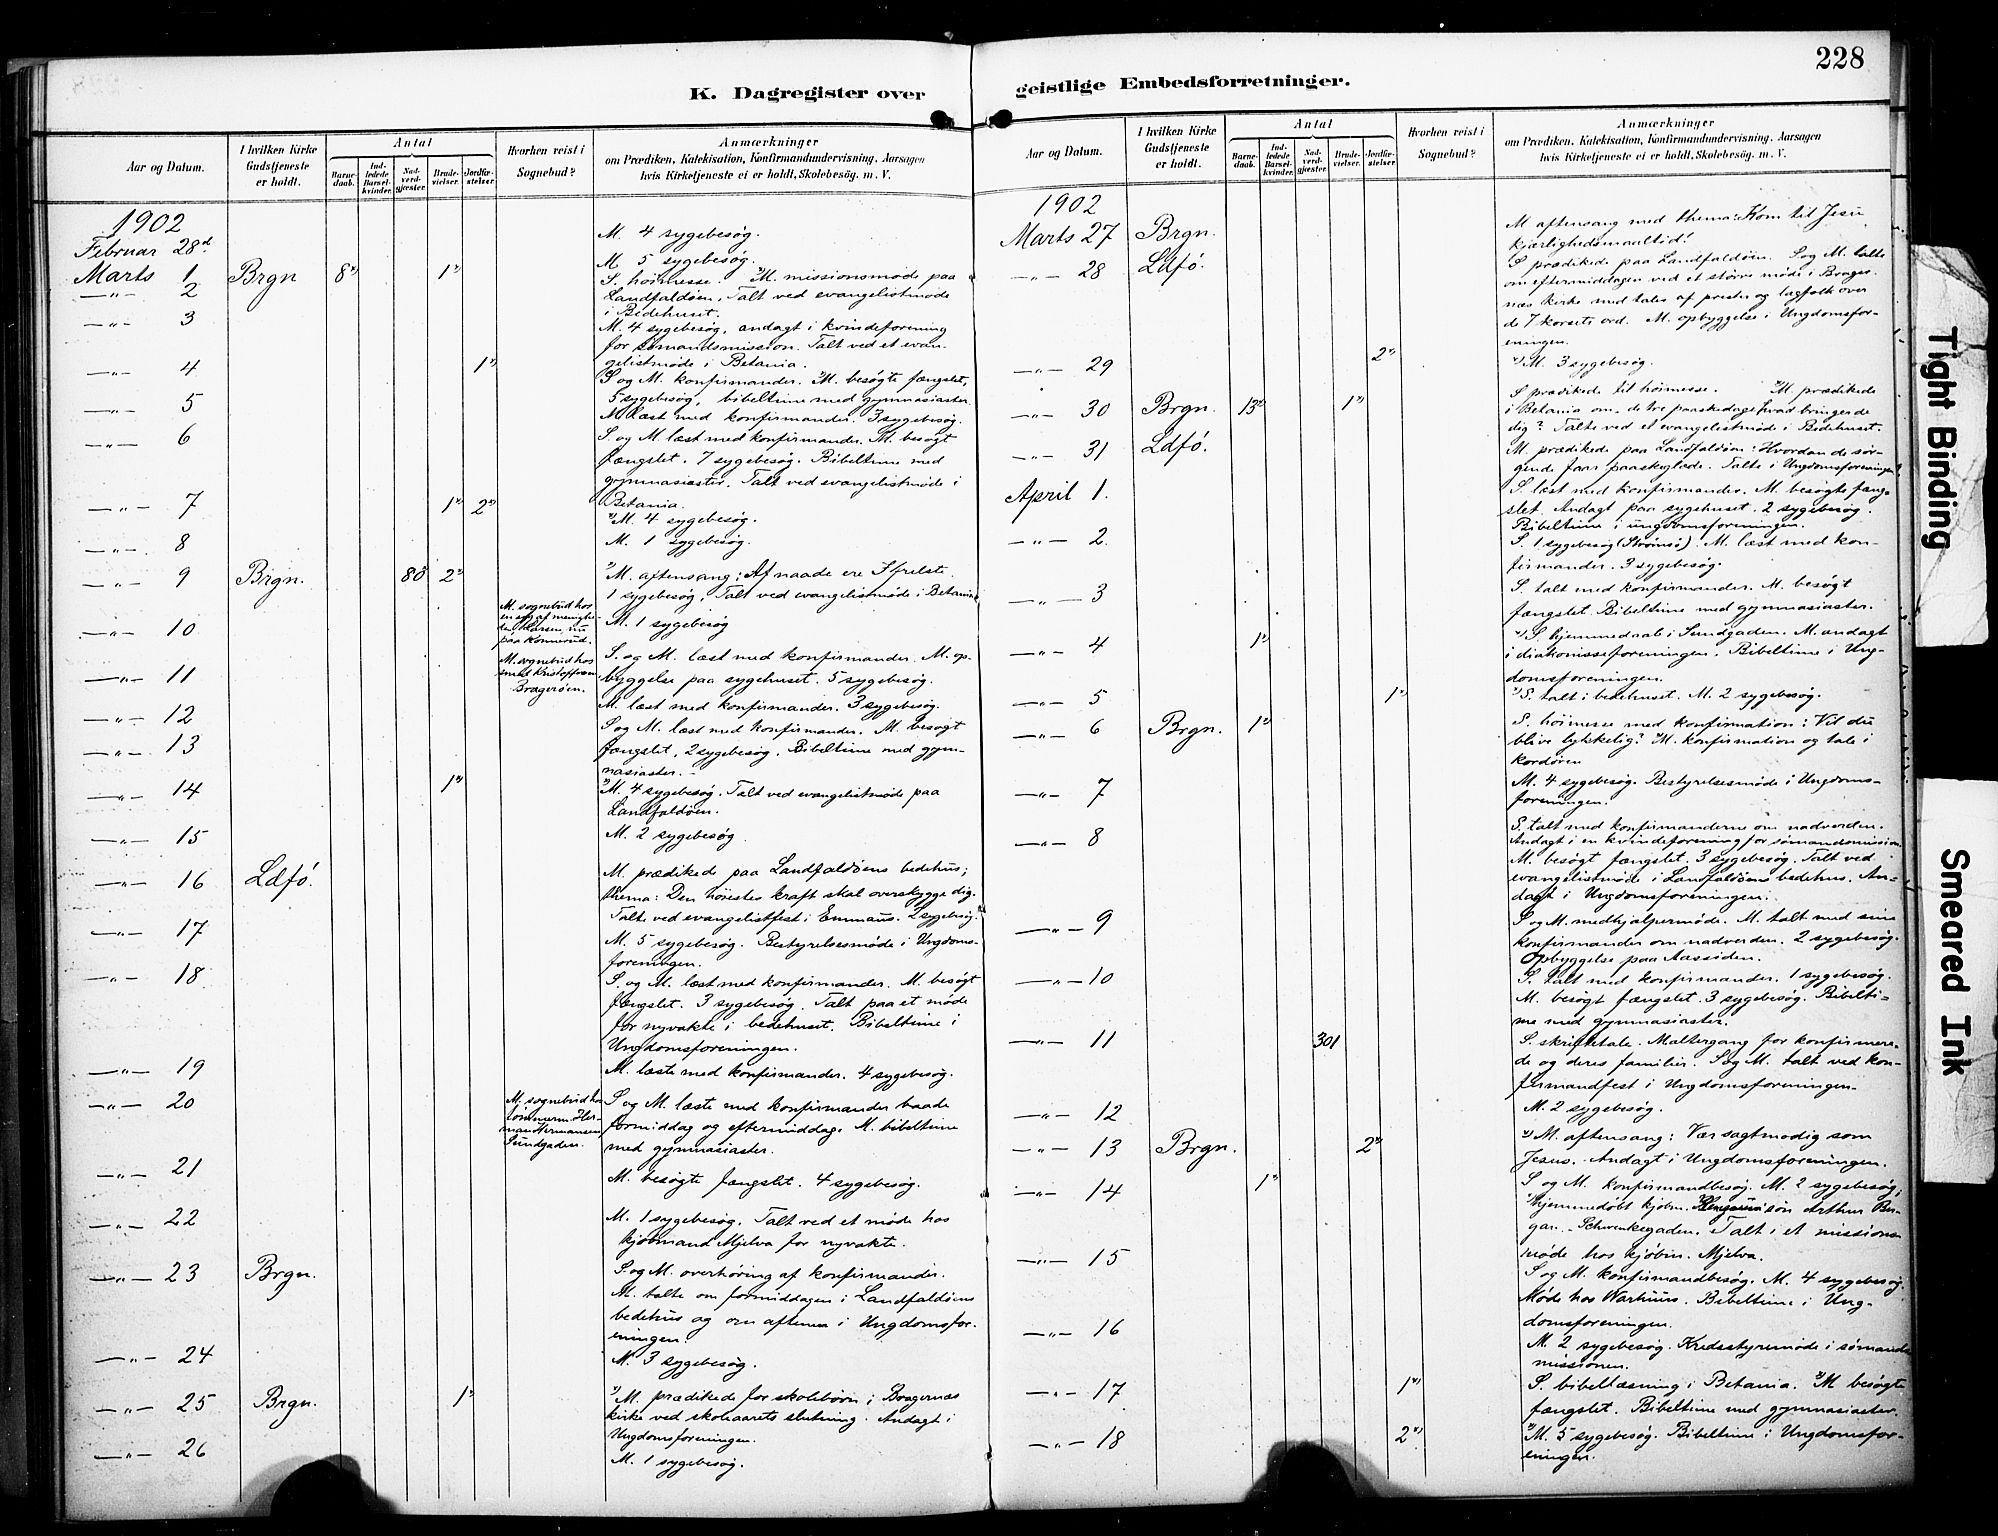 228
K. Dagregister over geistlige Embedsforretninger.
Aar og Datum.
I hvilken Kirke Gudstjeneste er holdt.
Antal
Barnedaab.
Indledede Barselkvinder.
Nadverdgjæster
Brudevielser.
Jordfæstelser.
Hvorhen reist i Sognebud?
Anmærkninger
om Prædiken, Katekisation, Konfirmandundervisning, Aarsagen
hvis Kirketjeneste ei er holdt, Skolebesög. m. V.
1902
Februar 28d M. 4 sygebesøg.
Marts 1 M 5 sygebesøg.
—"— 2 Brgn 8 1 S. høimesse. M. missionsmøde paa
Landfaldøen. Talt ved evangelistmøde
i Bidehuset.
—"— 3 M. 4 sygebesøg, andagt i kvindeforening
for sømandsmission. Talt ved et evan-
gelistmøde i Betania.
—"— 4 1 S og M. konfirmander. M. besøgte fængslet,
5 sygebesøg, bibeltime med gymnasiaster.
—"— 5 M. læst med konfirmander. 3 sygebesøg.
—"— 6 S. og M. læst med konfirmander. M. besøgt
fængslet. 7 sygebesøg. Bibeltime med
gymnasiaster. Talt ved evangelistmøde i
Betania.
—"— 7 1 2 M. 4 sygebesøg.
—"— 8 M. 1 sygebesøg.
—"— 9 Brgn. 80 2 M. aftensang: Af naade ere I frelste.
1 sygebesøg. Talt ved evangelistmøde i Betania
—"— 10 M. sognebud hos
en syg af menighe-
den Larsen, nu
paa Konnerud. M. 1 sygebesøg
—"— 11 M. sognebud hos
smed Kristoffersen
Bragerøen. S. og M. læst med konfirmander. M. op-
byggelse paa sygehuset. 5 sygebesøg.
—"— 12 M. læst med konfirmander. 3 sygebesøg.
—"— 13 S og M. læst med konfirmander. M. besøgt
fængslet, 2 sygebesøg. Bibeltime med gym-
nasiaster.
—"— 14 1 M. 4 sygebesøg. Talt ved evangelistmøde paa
Landfaldøen.
—"— 15 M. 2 sygebesøg
—"— 16 Ldfø. M. prædikede paa Landfaldøens bedehus;
thema: Den høiestes kraft skal overskygge dig.
Talte ved evangelistfest i Emmaus. 2 sygebesøg.
—"— 17 M. 5 sygebesøg. Bestyrelsesmøde i Ungdoms-
foreningen.
—"— 18 S. og M. læst med konfirmander. M. besøgt
fængslet. 3 sygebesøg. Talt paa et møde
for nyvakte i bedehuset. Bibeltime i
Ungdomsforeningen.
—"— 19 M. læste med konfirmander. 4 sygebesøg.
—"— 20 M. sognebud hos
tømmerm. Her-
man Hermansen
Sundgaden. S og M. læste med konfirmander baade
formiddag og eftermiddag. M. bibeltime
med gymnasiaster.
—"— 21 M. besøgte fængslet. 4 sygebesøg.
—"— 22 M. 1 sygebesøg. Talt ved et møde hos
kjøbmand Mjelva for nyvakte.
—"— 23 Brgn. S. og M. overhøring af konfirmander.
M. talte om formiddagen i Landfaldøens
bedehus og om aftenen i Ungdomsfor-
eningen.
—"— 24 M. 3 sygebesøg.
—"— 25 Brgn. 1 M. prædikede for skolebørn i Bragernæs
kirke ved skoleaarets slutning. Andagt i
Ungdomsforeningen.
—"— 26 M. 1 sygebesøg.
Aar og Datum.
I hvilken Kirke Gudstjeneste er holdt.
Antal
Barnedaab.
Indledede Barselkvinder.
Nadverdgjæster
Brudevielser.
Jordfæstelser.
Hvorhen reist i Sognebud?
Anmærkninger
om Prædiken, Katekisation, Konfirmandundervisning, Aarsagen
hvis Kirketjeneste ei er holdt, Skolebesög. m. V.
1902
Marts 27 Brgn. M aftensang med thema: Kom til Jesu
kjærlighedsmaaltid!
—"— 28 Ldfø. S prædikede paa Landfaldøen. S og M. talte
om eftermiddagen ved et større møde i Brager-
næs kirke med tales af prester og lægfolk over
de 7 korsets ord. M. opbyggelse i Ungdomsfor-
eningen.
—"— 29 2 M. 3 sygebesøg.
—"— 30 Brgn. 13 1 S prædikede til høimesse. M. prædikede
i Betania om de tre paaskedage, hvad bringer de
dig? Talte ved et evangelistmøde i Bidehuset.
—"— 31 Ldfø. M. prædikede paa Landfaldøen: Hvordan de sør-
gende faar paaskeglæde. Talte i Ungdomsforeningen
April 1. S. læst med konfirmander. M. besøgte fæng-
slet. Andagt paa sygehuset. 2 sygebesøg.
Bibeltime i ungdomsforeningen.
—"— 2. S. 1 sygebesøg (Strømsø). M. læst med kon-
firmander. 3 sygebesøg.
—"— 3 S. talt med konfirmander. M. besøgt
fængslet. Bibeltime med gymnasiaster.
—"— 4 1 S. hjemmedaab i Sundgaden. M. andagt
i diakonisseforeningen. Bibeltime i Ung-
domsforeningen.
—"— 5 1 S. talt i bedehuset. M. 2 sygebesøg.
—"— 6 Brgn. 1 S. høimesse med konfirmation: Vil du
blive lykkelig? M. konfirmation og tale i
kordøren
—"— 7 M. 4 sygebesøg. Bestyrelsesmøde i Ungdoms-
foreningen.
—"— 8 S. talt med konfirmanderne om nadverden.
Andagt i en kvindeforening for sømandsmission.
M. besøgt fængslet. 3 sygebesøg. Talt ved
evangelistmøde i Landfaldøens bedehus. An-
dagt i Ungdomsforeningen.
—"— 9 S og M. medhjælpermøde. M. talt med sine
konfirmander om nadverden. 2 sygebesøg.
Opbyggelse paa Aassiden.
—"— 10 S. talt med konfirmander. 1 sygebesøg.
M. besøgt fængslet. 3 sygebesøg. Bibelti-
me med gymnasiaster.
—"— 11 301 S. skriftetale. Altergang for konfirmere-
de og deres familier. S og M. talt ved kon-
firmandfest i Ungdomsforeningen.
—"— 12 M. 2 sygebesøg.
—"— 13 Brgn. 2 M. aftensang: Vær sagtmodig som
Jesus. Andagt i Ungdomsforeningen.
—"— 14 1 S og M. konfirmandbesøg. M. 2 sygebesøg,
hjemmedøbt kjøbm. søn Arthur Ber-
gan. Schwenkegaden. Talt i et missions-
møde hos kjøbm. Mjelva.
—"— 15 S og M. konfirmandbesøg. M. 4 sygebesøg.
Møde hos Warhuus. Bibeltime i Ung-
domsforeningen.
—"— 16 M. 2 sygebesøg. Kredsstyremøde i sømands-
missionen.
—"— 17 1 S. bibellæsning i Betania. M besøgte
fængslet. Bibeltime med gymnasiaster.
—"— 18 2 M. 5 sygebesøg. Bibeltime i Ungdomsfor-
eningen.
Tight Binding
Smeared Ink